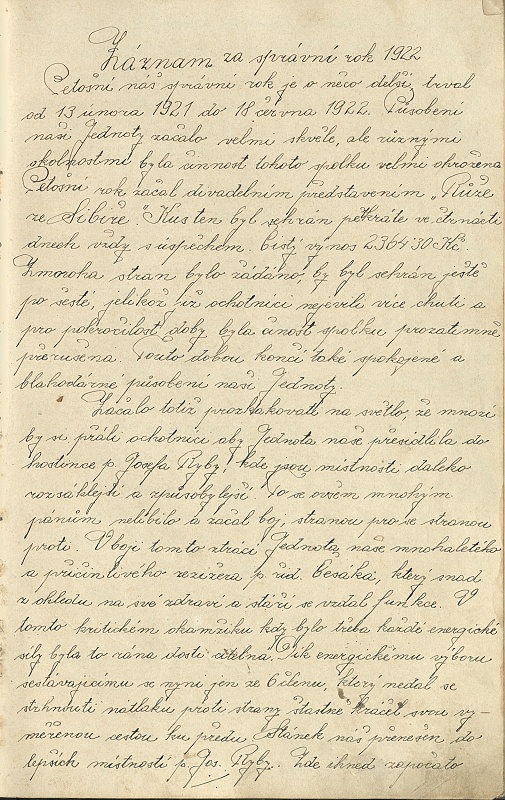 Záznam za správní rok 1922
Letošní náš správní rok je o něco delší, trval
od 13 února 1921 do 18 června 1922. Působení
naší Jednoty začalo velmi skvěle, ale různými
okolnostmi byla činnost tohoto spolku velmi ohrožena
Letošní rok začal divadelním představením „Růže
ze Sibiře". Kus ten byl sehrán pětkráte ve čtrnácti
dnech vždy s úspěchem. čistý výnos 2364 30 Kč.
Zmnoha stran bylo žádáno, by byl sehrán ještě
po šesté, jelikož již ochotníci nejevili více chuti a
pro pokročilost doby byla činost spolku prozatimně
přerušena. Touto dobou končí také spokojené a
blahodárné působení naší Jednoty.
Začalo totiž prozkakovati na světlo, že mnozí
by si přáli ochotníci aby Jednota naše přesídlila do
hostince p. Josefa Ryby, kde jsou místnosti daleko
rozsáhlejší a způsobylejší. To se ovšem mnohým
pánům nelíbilo a začal boj, stranou pro se stranou
proti. V boji tomto ztrácí Jednota naše mnohaletého
a přičinlivého režiséra p. říd. Česáka, který snad
z ohledu na své zdraví a stáří se vzdal funkce. V
tomto kritickém okamžiku kdy bylo třeba každé energické
síly byla to rána dosti citelna. Dík energickému výboru
sestávajícímu se nyní jen ze 6 členu, který nedal se
strhnouti nátlaku proti strany šťastně kráčel svou vy-
měřenou cestou ku předu. Stánek náš přenešen do
lepších místností p. Jos. Ryby. Zde ihned započato